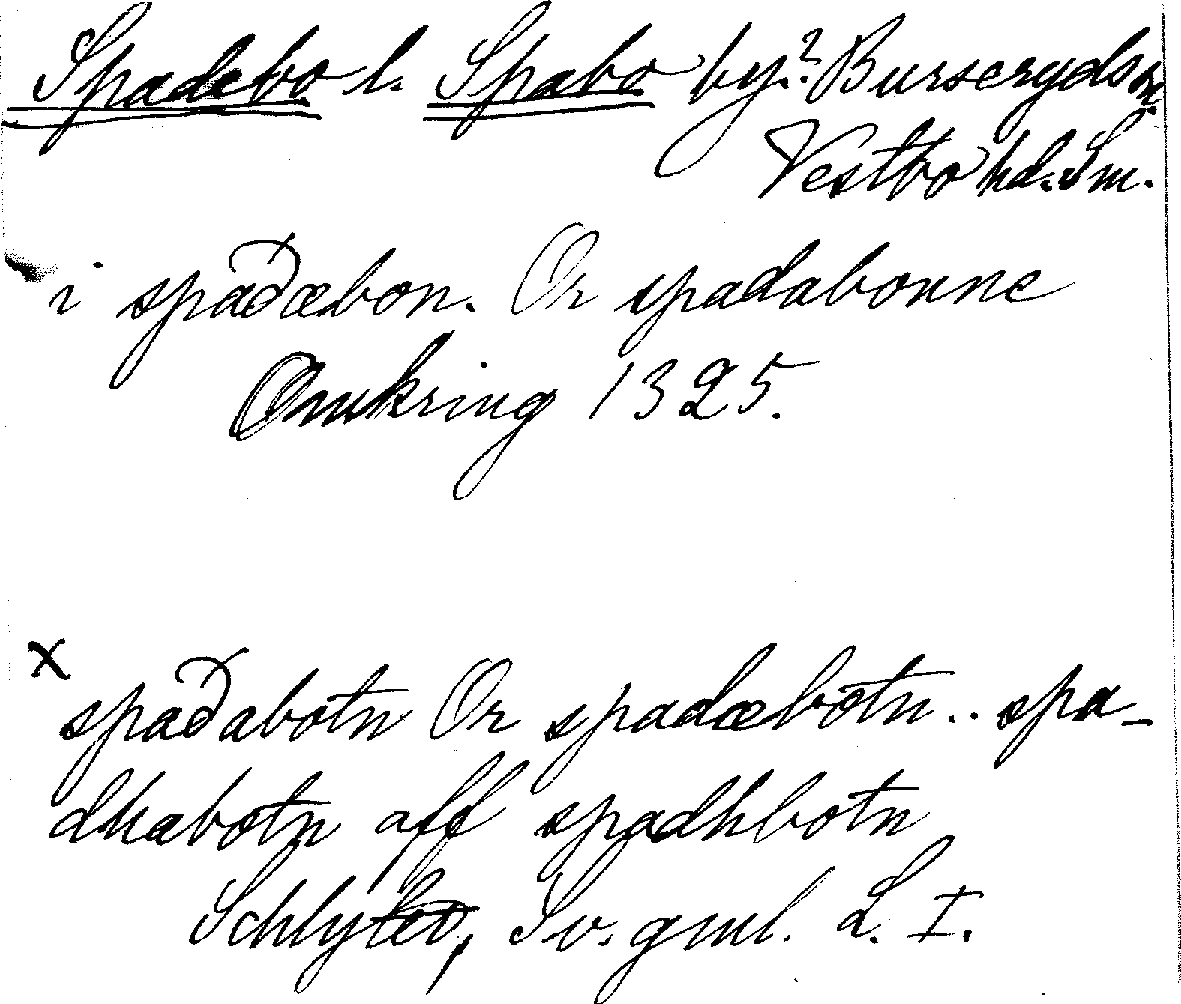 Spadebo l. Spabo by? Burseryds sn.
Vestbo hd. Sm.
i spaðæbon. Or spadabonne
Omkring 1325.
x
spaðabotn Or spadæbotn .. spa-
dhabotn aff spadhbotn
Schlyter, Sv. gml. L. I.